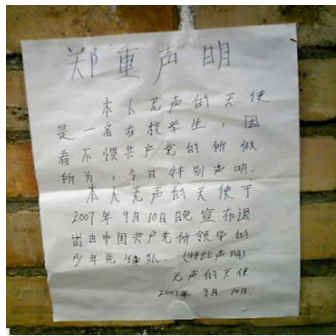 郑重声明
本人无声的天使
是一名在校学生，因
看不惯共产党的所做
所为，今日特别声明：
本人无声的天使于
2007年9月10日晚宣布退
出由中国共产党所领导的
少年先锋队．(特此声明)
无声的天使
2007年9月10日．